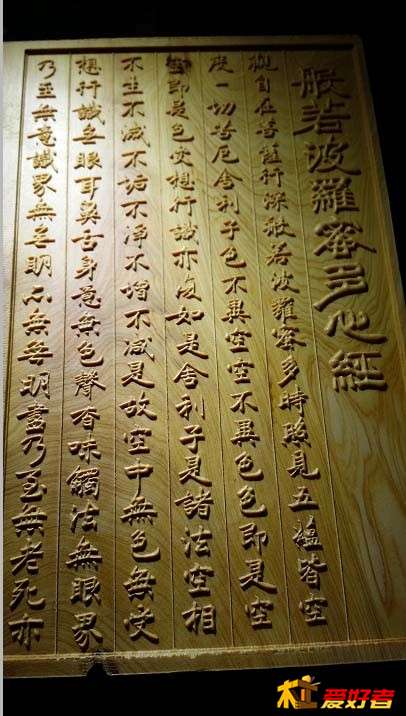 般若波羅蜜多心經
觀自在菩薩行深般若波羅蜜多時照見五蘊皆空
度一切苦厄舍利子色不異空空不異色色即是空
空即是色受想行識亦復如是舍利子是諸法空相
不生不滅不垢不淨不增不減是故空中無色無受
想行識无眼耳鼻舌身意無色聲香味觸法無眼界
乃至無意識界無无明亦無无明盡乃至無老死亦
木工爱好者